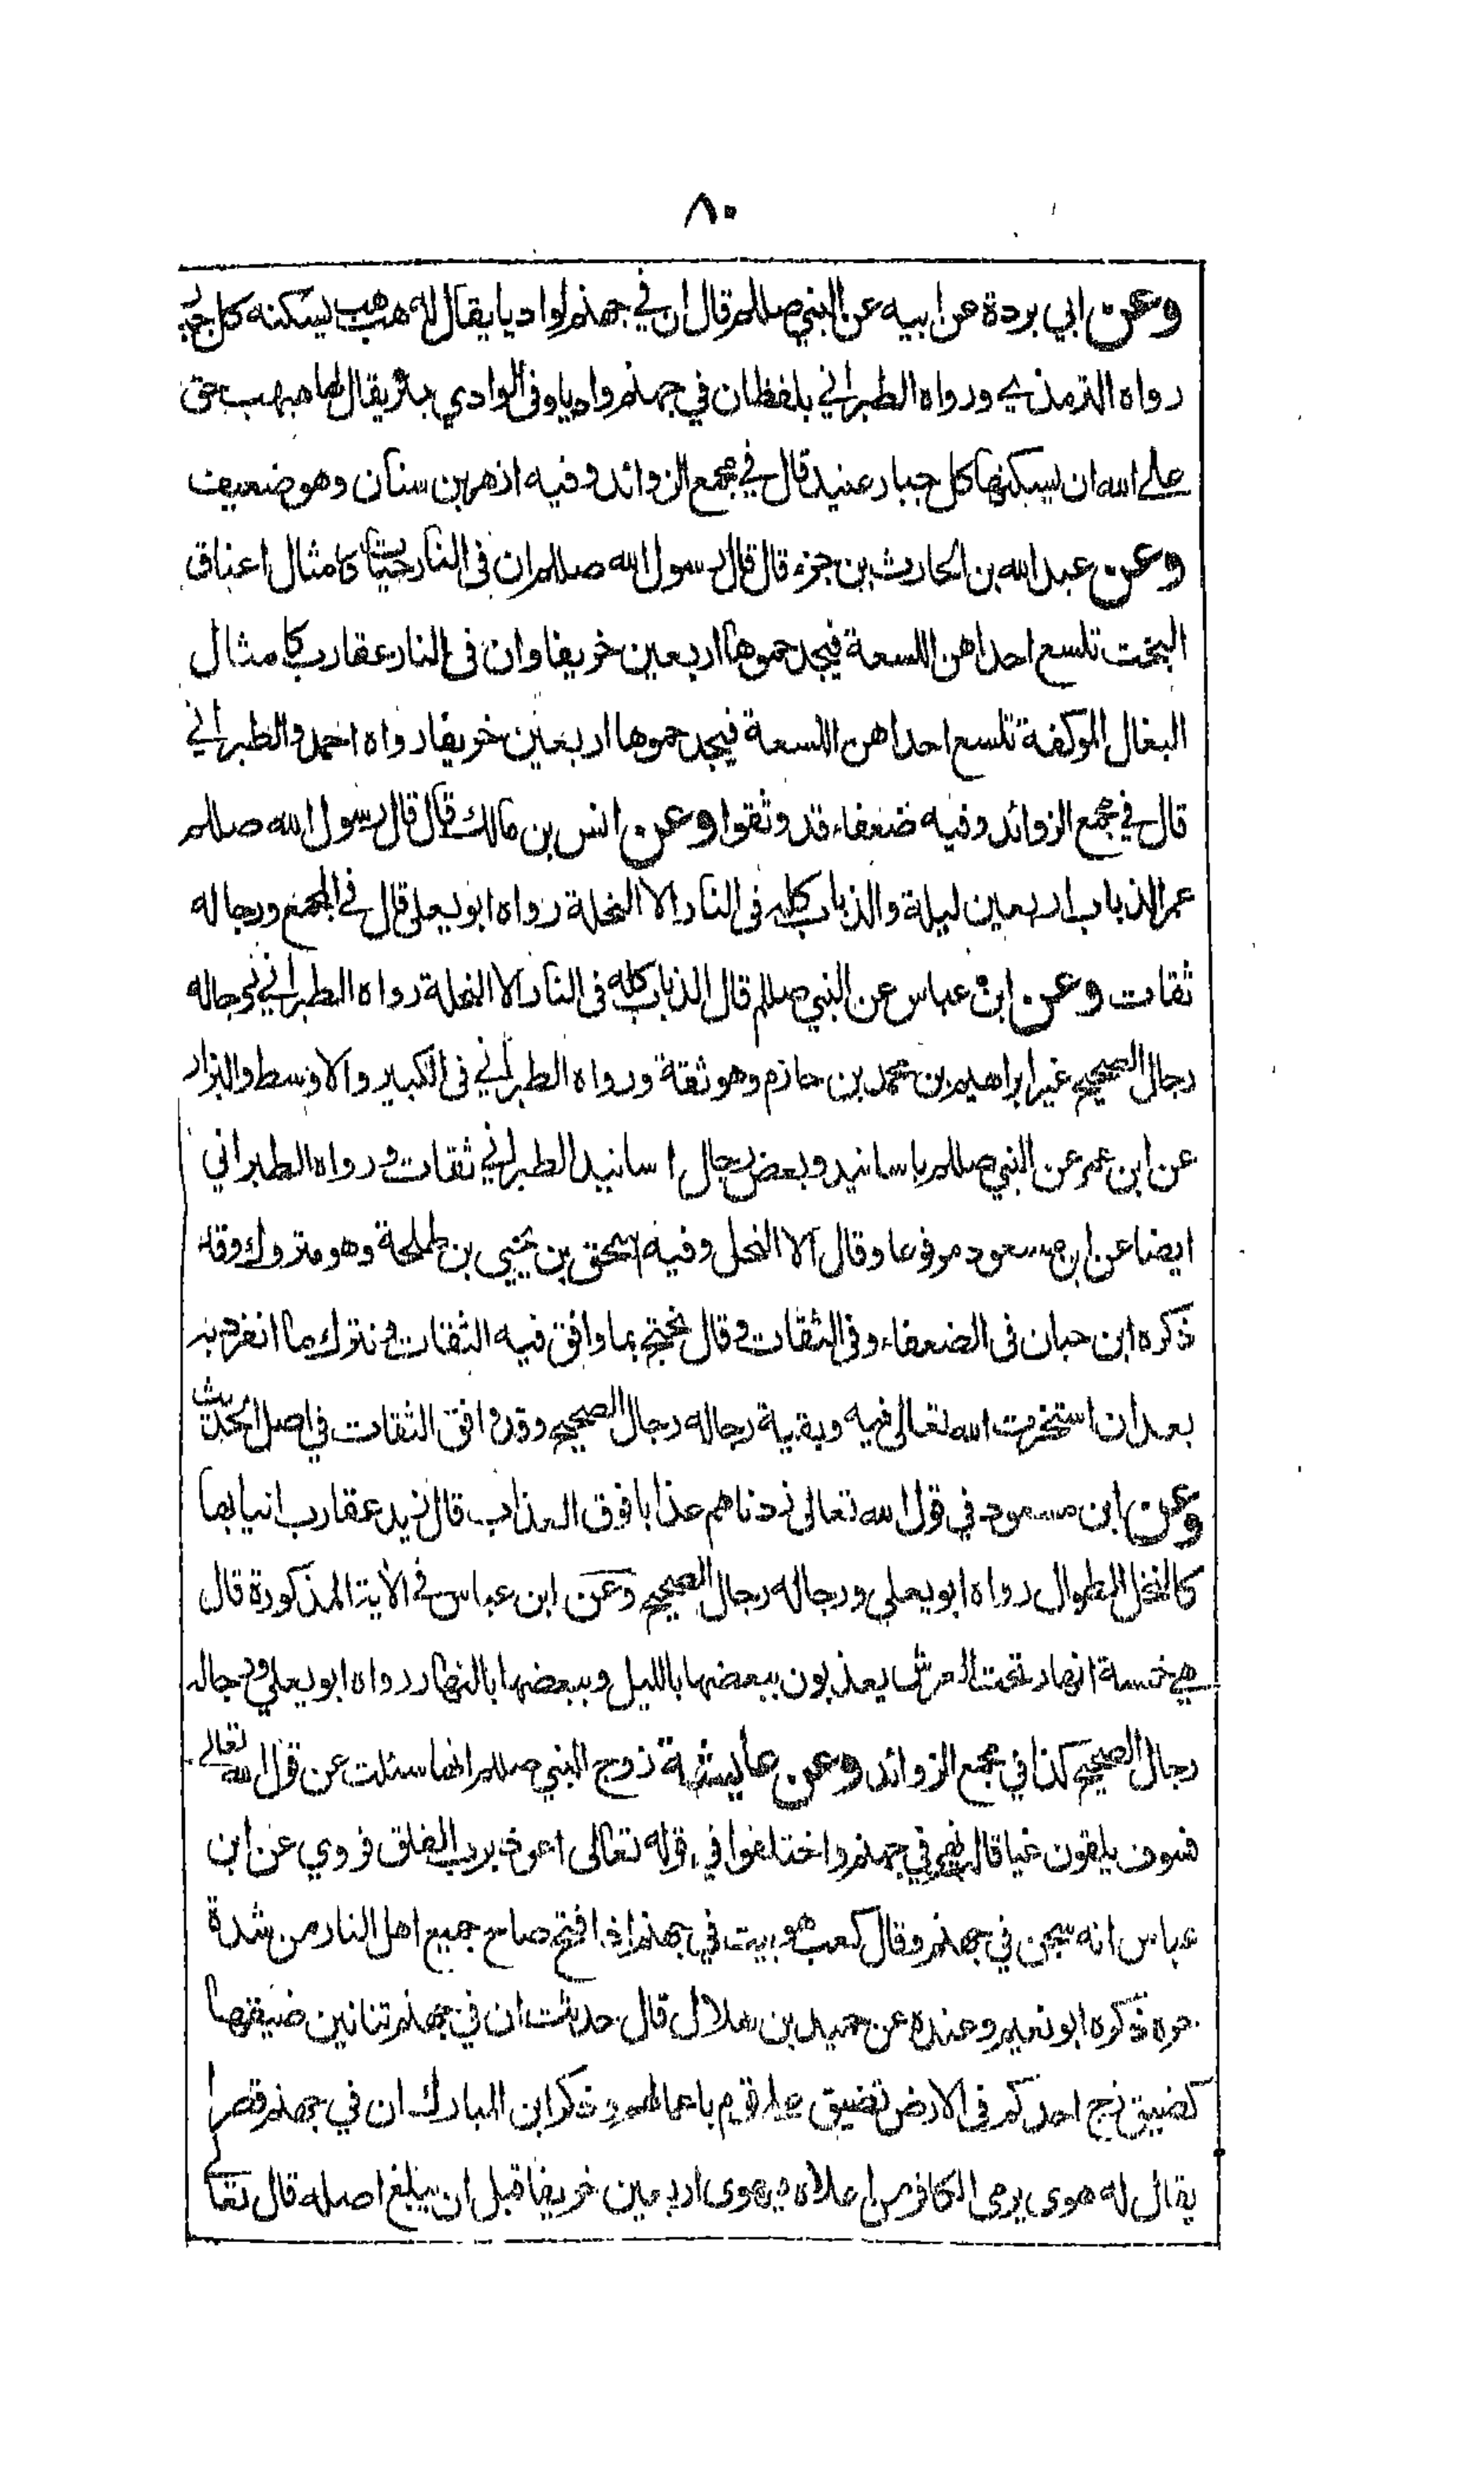 ٨٠
وعن ابي بردة عن ابيه عن النبي صللم قال ان في جهنم لواديا يقال له هبهب يسكنه كل جبار
رواه الترمذي ورواه الطبراني بلفظ ان في جهنم واديا وفى الوادي بئر يقال لها هبهب حق
على الله ان يسكنها كل جبار عنيد قال في مجمع الزوائد وفيه ازهر بن سنان وهو ضعيف
وعن عبد الله بن الحارث بن جزء قال قال رسول الله صللم ان فى النار حيات كامثال اعناق
البخت تلسع احداهن اللسعة فيجد حموها اربعين خريفا وان فى النار عقارب كامثال
البغال الموكفة تلسع احداهن اللسعة فيجد حموها اربعين خريفا رواه احمد والطبراني
قال في مجمع الزوائد وفيه ضعفاء قد وثقوا وعن انس بن مالك قال قال رسول الله صللم
عمر الذباب اربعين ليلة والذباب كله فى النار الا النحلة رواه ابو يعلى قال في المجمع ورجاله
ثقات وعن ابن عباس عن النبي صللم قال الذباب كله فى النار الا النحلة رواه الطبراني ورجاله
رجال الصحيح غير ابراهيم بن محمد بن حازم وهو ثقة ورواه الطبراني فى الكبير والاوسط والبزار
عن ابن عمر عن النبي صللم باسانيد وبعض رجال اسانيد الطبراني ثقات ورواه الطبراني
ايضا عن ابن مسعود مرفوعا وقال الا النحل وفيه اسحق بن يحيى بن طلحة وهو متروك وقد
ذكره ابن حبان فى الضعفاء وفى الثقات وقال يحتج بما وافق فيه الثقات ونترك ما انفرد به
بعد ان استخرت الله تعالى فيه وبقية رجاله رجال الصحيح وقد وافق الثقات في اصل الحديث
وعن ابن مسعود في قول الله تعالى زدناهم عذابا فوق العذاب قال زيد عقارب انيابها
كالنخل الطوال رواه ابو يعلي ورجاله رجال الصحيح وعن ابن عباس في الآية المذكورة قال
هي خمسة انهار تحت العرش يعذبون ببعضها بالليل وببعضها بالنهار رواه ابو يعلي ورجاله
رجال الصحيح كذا في مجمع الزوائد وعن عايشة زوج النبي صللم انها سئلت عن قول الله تعالى
فسوف يلقون غيا قال نهر في جهنم واختلفوا في قوله تعالى اعوذ برب الفلق فروي عن ابن
عباس انه سجن في جهنم وقال كعب هو بيت في جهنم اذا فتح صاح جميع اهل النار من شدة
حره ذكره ابو نعيم وعنده عن حميد بن هلال قال حدثت ان في جهنم تنانين ضيقها
كضيق زج احدكم فى الارض تضيق على قوم باعمالهم وذكر ابن المبارك ان في جهنم قصرا
يقال له هوى يرمى الكافر من اعلاه فيهوى اربعين خريفا قبل ان يبلغ اصله قال تعالى